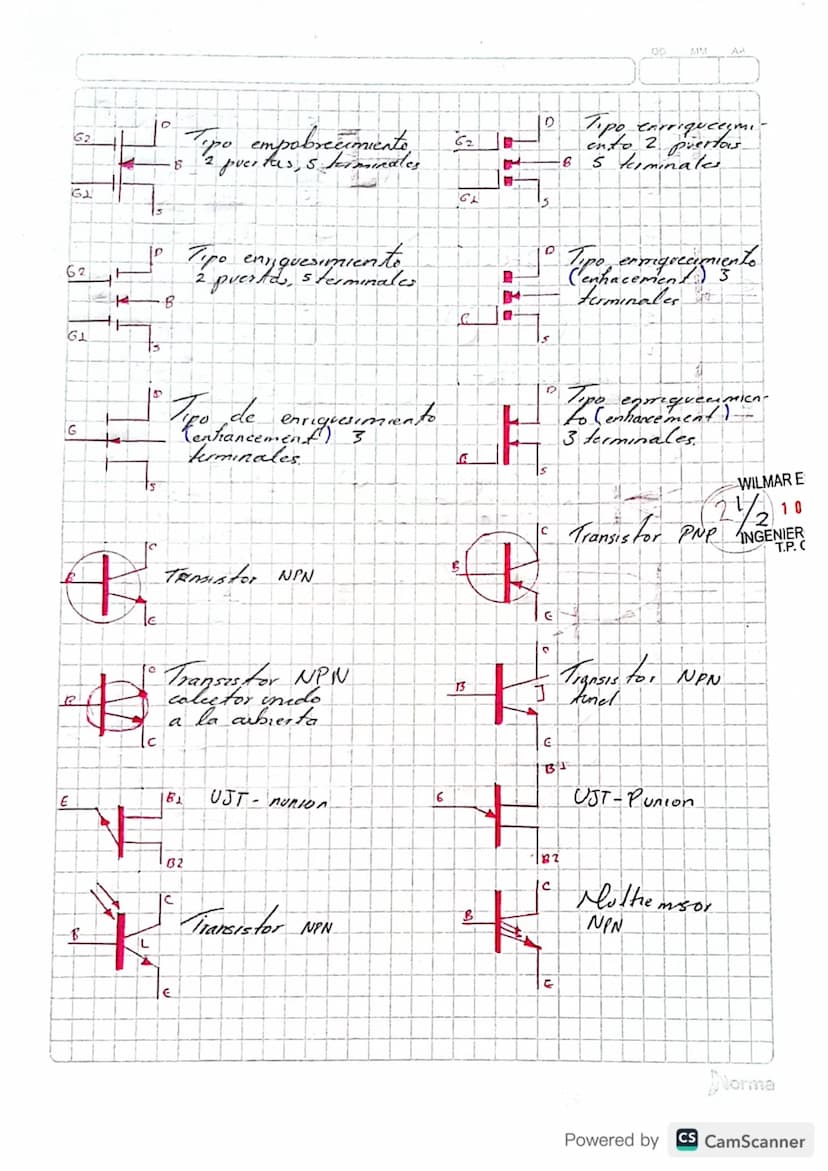 DD MM AA
D
G2
Tipo empobrecimiento
2 puertas, 5 terminales
B
G1
S
D
G2
Tipo enrriquecimi-
ento 2 puertas
5 terminales
B
G1
S
D
G2
Tipo enriquesimiento
2 puertas, 5 terminales
B
G1
S
D
Tipo enrriquecimiento
(enhacement) 3
terminales
S
D
G
Tipo de enriquesimiento
(enhancement) 3
terminales
S
D
Tipo enrriquecimien-
to (enhancement)
3 terminales
G
S
WILMAR E
21/2 10
INGENIER
T.P.
C
B
Transistor NPN
E
C
B
Transistor PNP
E
C
Transistor NPN
colector unido
a la cubierta
C
B
Transistor NPN
tunel
E
E
B1
UJT - nunion
B2
B1
6
UJT - Punion
B2
C
B
L
Transistor NPN
E
C
B
Multiemsor
NPN
E
Norma
Powered by CS CamScanner